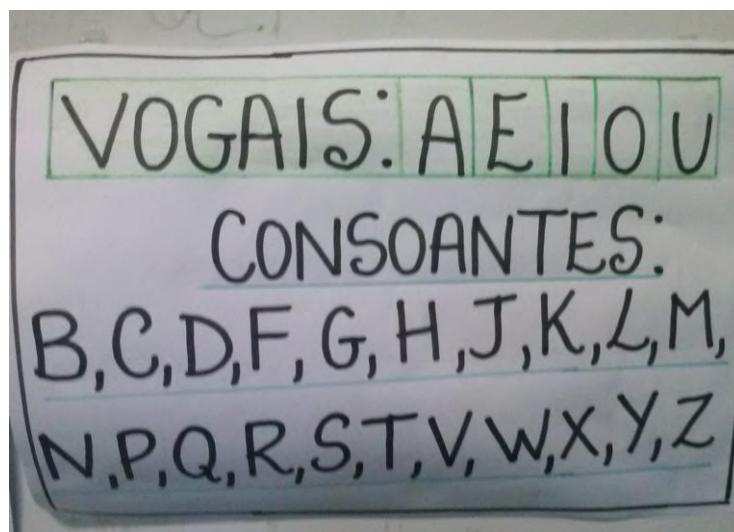 VOGAIS: A E I O U
CONSOANTES:
B, C, D, F, G, H, J, K, L, M,
N, P, Q, R, S, T, V, W, X, Y, Z